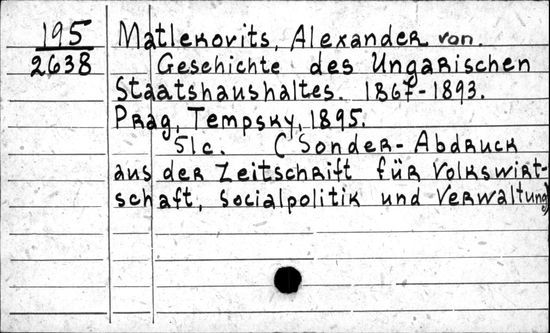 195 Matlekovits, Alexander von.
2638 Geschichte des Ungarischen
Staatshaushaltes. 1867-1893.
Prag, Tempsky, 1895.
51c. (Sonder-Abdruck
aus der Zeitschrift für Volkswirt-
schaft, Socialpolitik und Verwaltung)